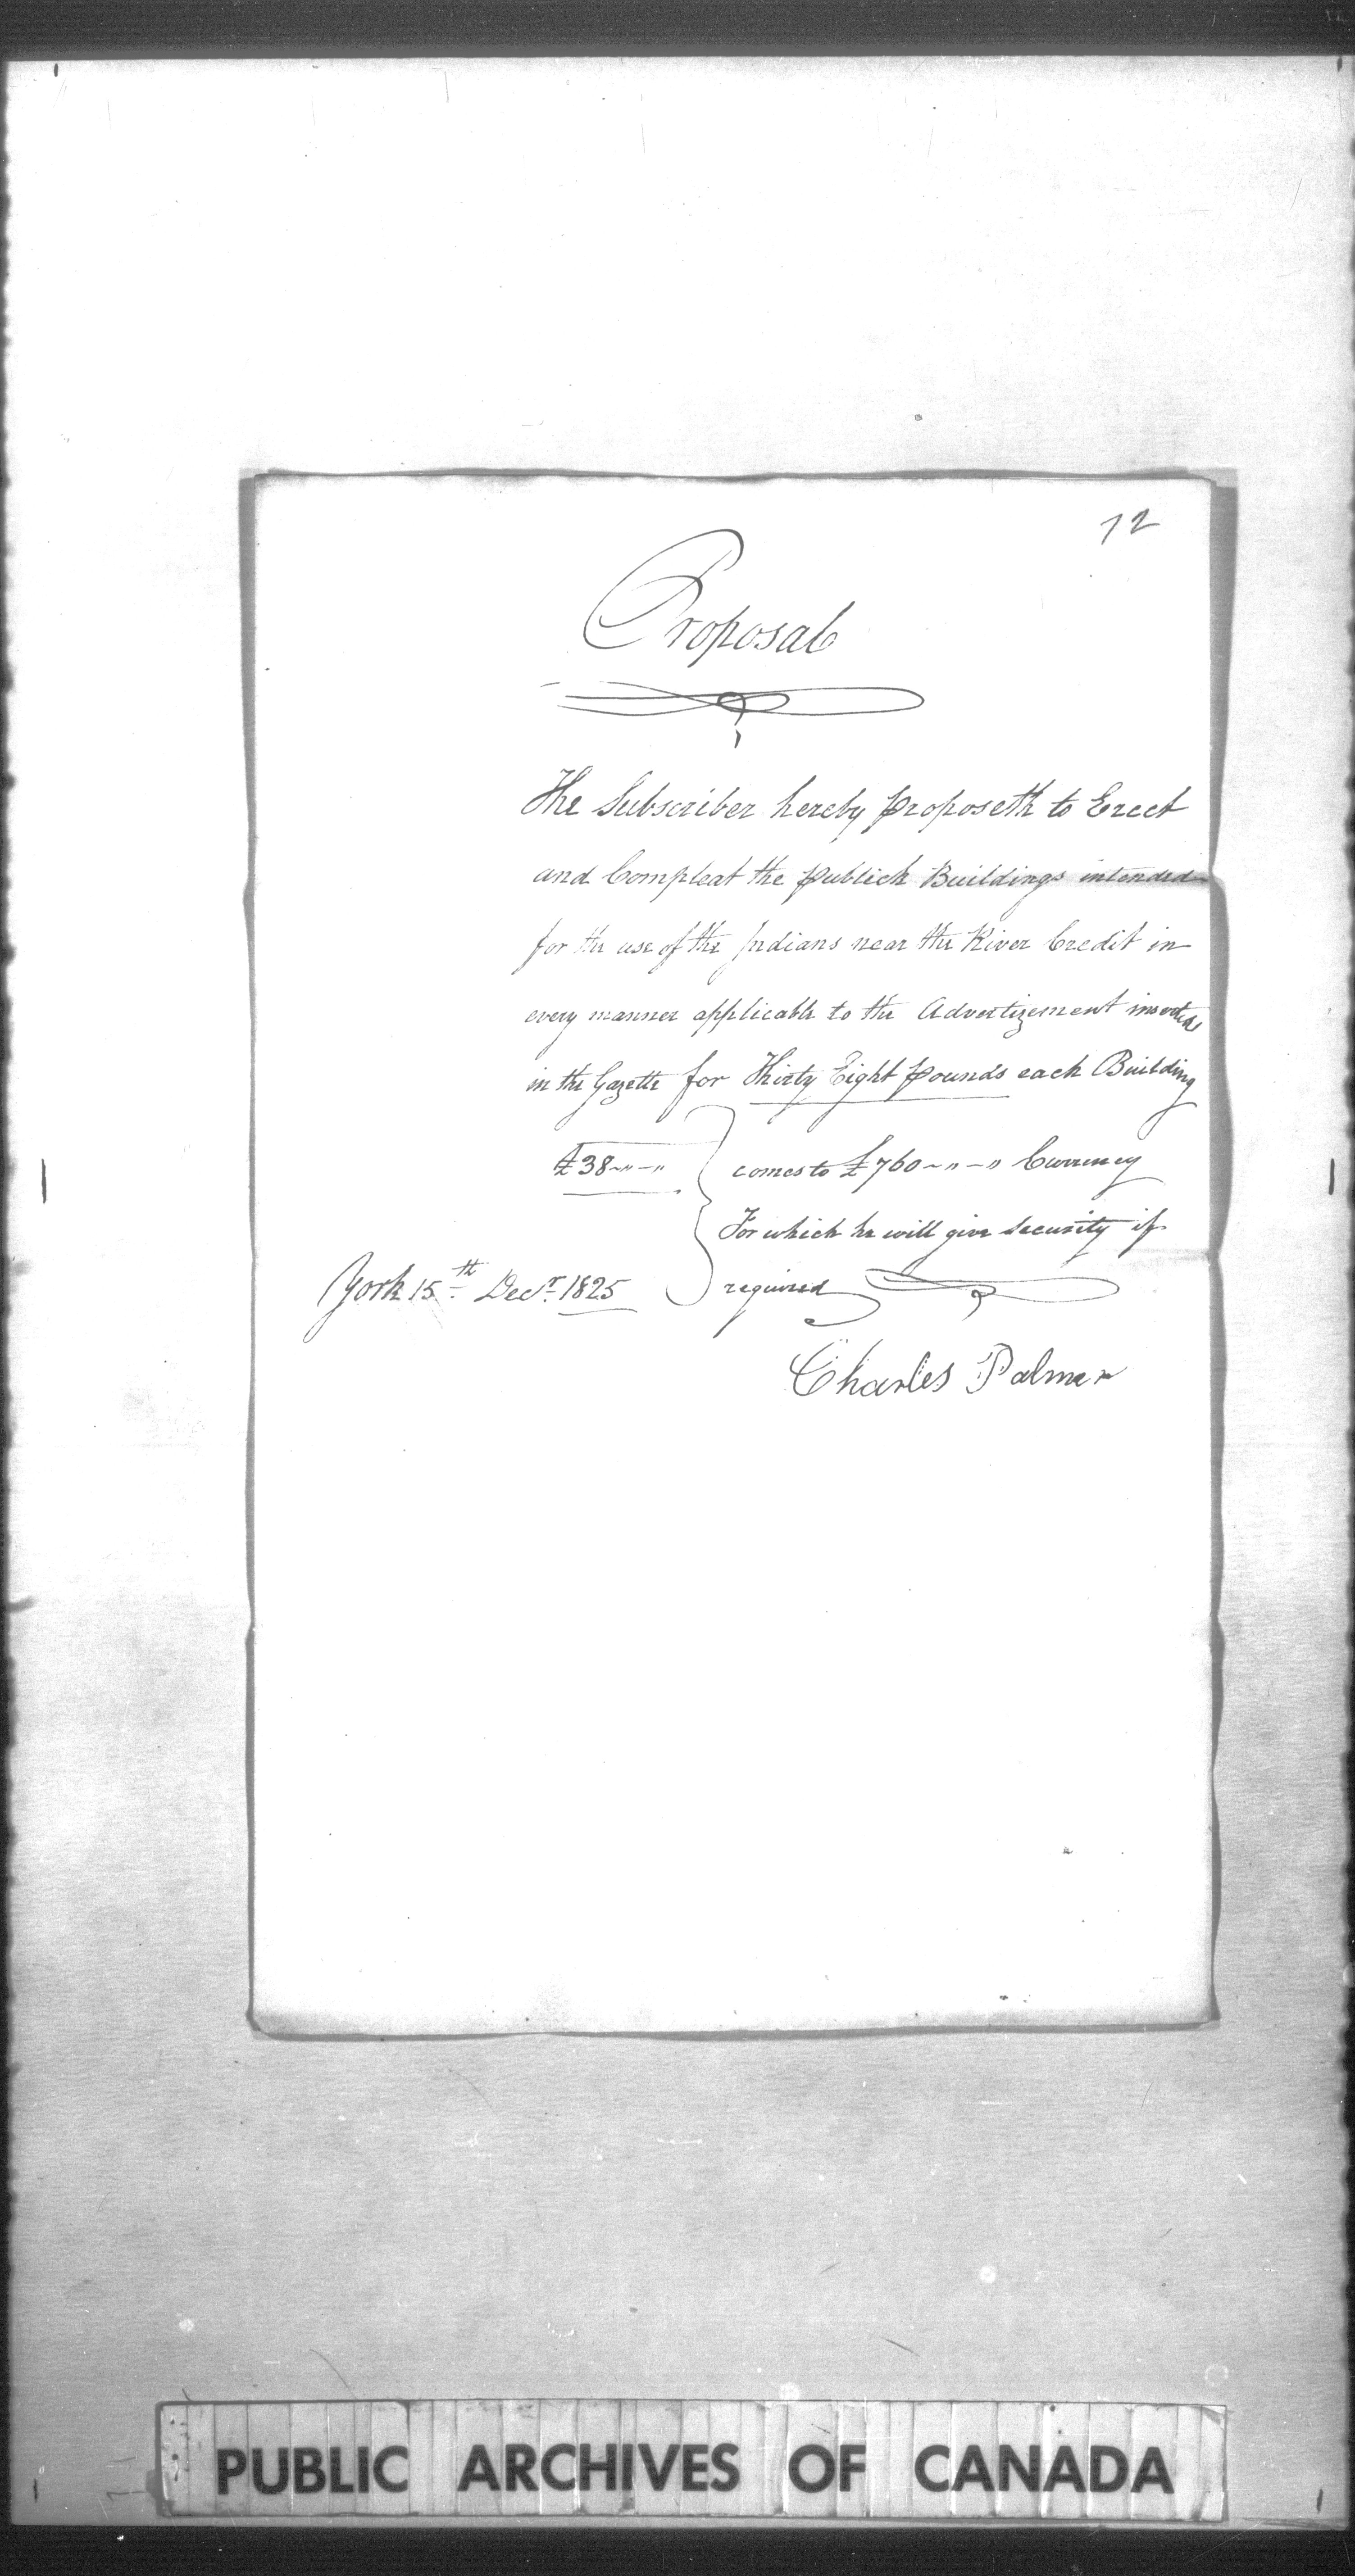 72
Proposal
The Subscriber hereby proposeth to Erect
and Compleat the publick Buildings intended
for the use of the Indians near the River Credit in
every manner applicable to the Advertizement inserted
in the Gazette for Thirty Eight pounds each Building
£38 ~ " - " comes to £760 ~ " - " Currency
For which he will give security if
York 15th Decr 1825 required
Charles Palmer
PUBLIC ARCHIVES OF CANADA